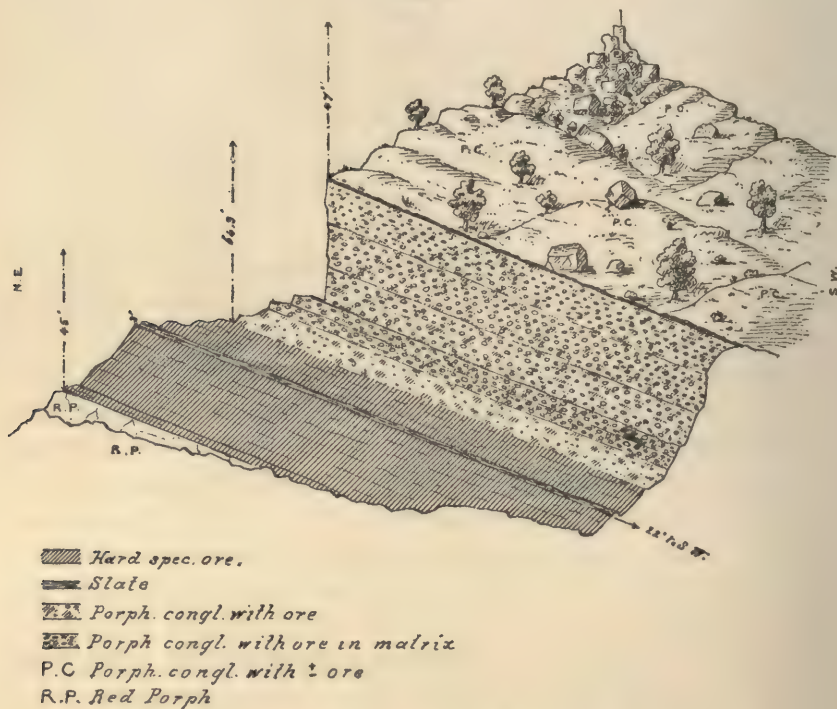 47''
P.C.
P.C.
P.C.
P.C.
45'
N.E.
S.W.
R.P.
R.P.
S W.
Hard spec. ore.
Slate
Porph. congl. with ore
Porph congl. with ore in matrix
P.C Porph. congl. with ± ore
R.P. Red Porph